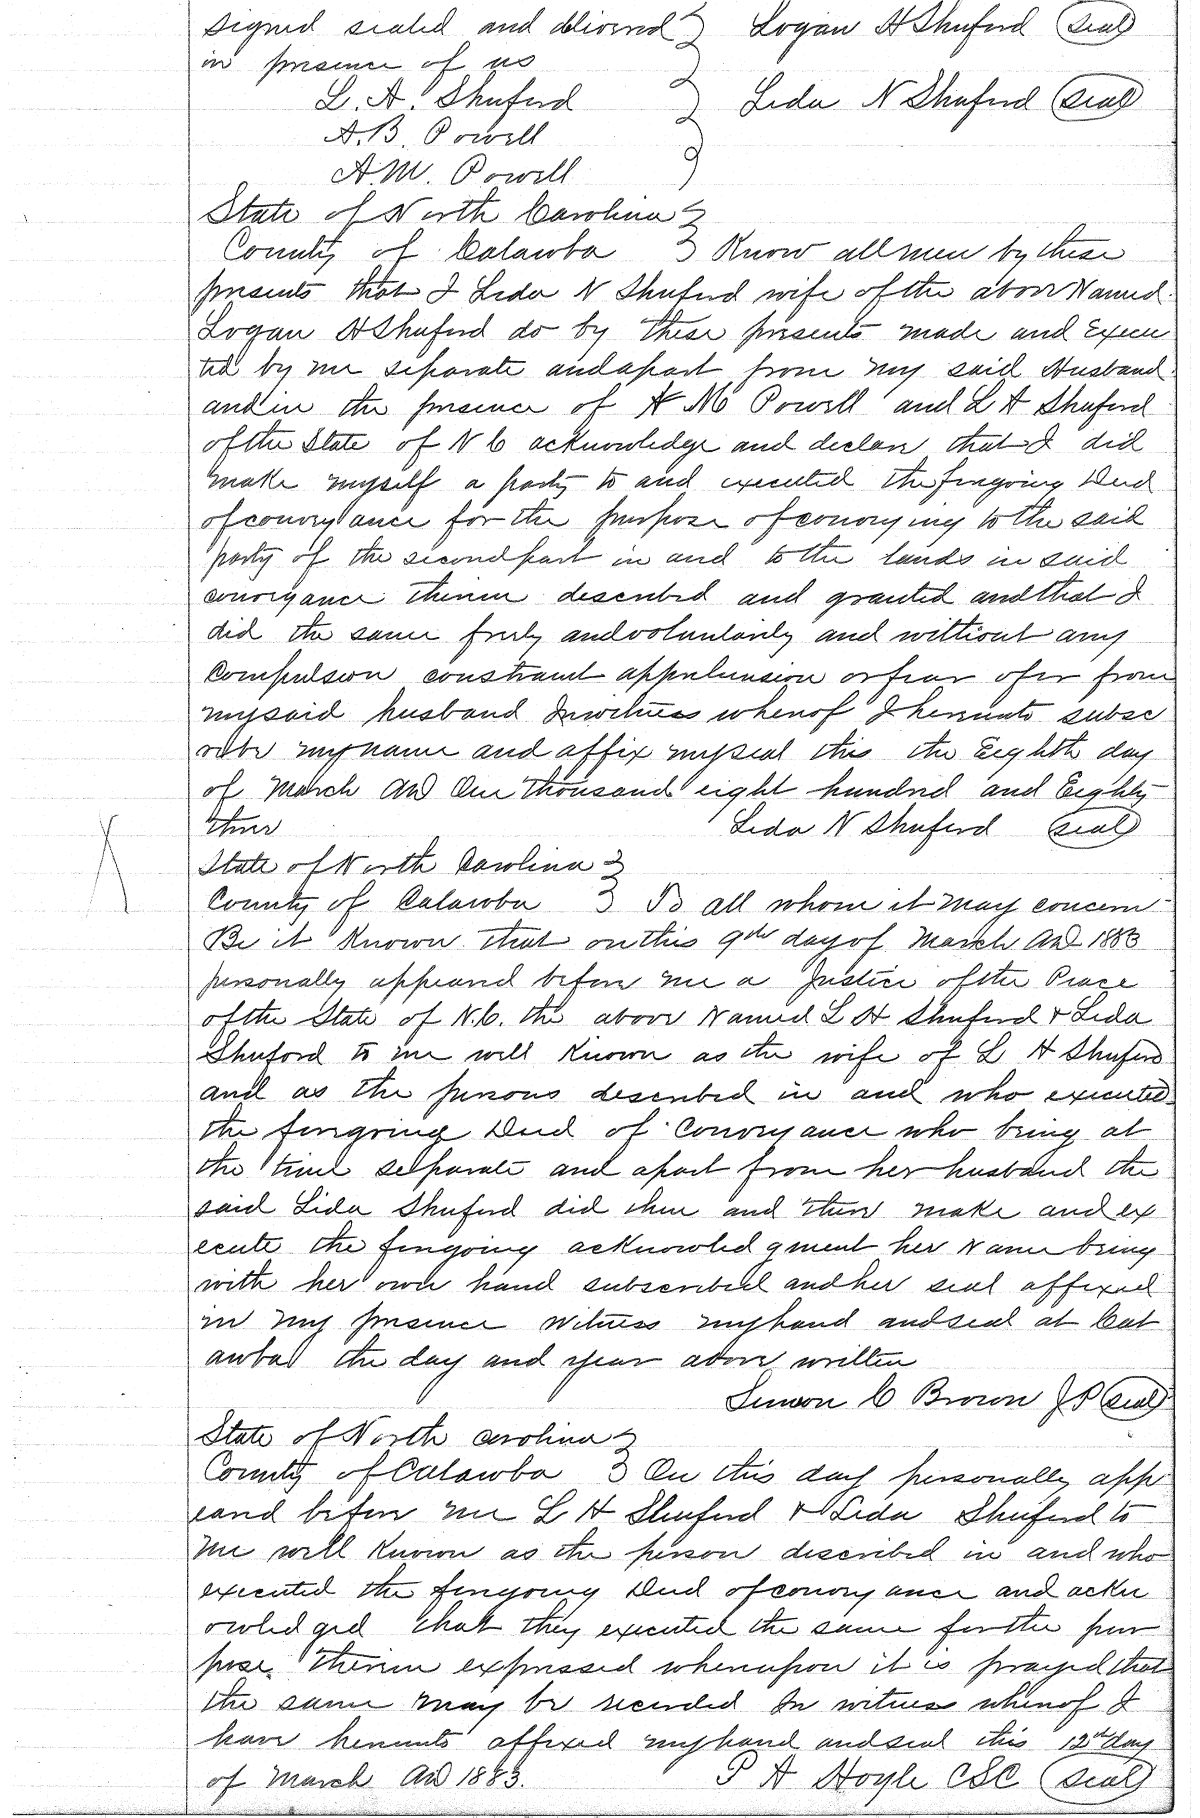 Signed sealed and delivered Logan H Shuford (Seal)
in presence of us
L. A. Shuford Lida N Shuford (Seal)
A. B. Powell
A. M. Powell
State of North Carolina
County of Catawba Know all men by these
presents that I Lida N Shuford wife of the above Named
Logan H Shuford do by these presents made and Execu
ted by me separate and apart from my said Husband
and in the presence of A M Powell and L A Shuford
of the State of N C acknowledge and declare that I did
make myself a party to and executed the foregoing Deed
of conveyance for the purpose of conveying to the said
party of the second part in and to the lands in said
conveyance therein described and granted and that I
did the same freely and voluntarily and without any
Compulsion constraint apprehension or fear of or from
my said husband In witness whereof I hereunto subsc
ribe my name and affix my seal this the Eighth day
of March AD One Thousand eight hundred and Eighty
three Lida N Shuford (seal)
State of North Carolina
County of Catawba To all whom it May concern
Be it Known that on this 9th day of March AD 1883
personally appeared before me a Justice of the Peace
of the State of N.C. the above Named L H Shuford & Lida
Shuford to me well Known as the wife of L H Shuford
and as the persons described in and who executed
the foregoing Deed of Conveyance who being at
the time separate and apart from her husband the
said Lida Shuford did then and there make and ex
ecute the foregoing acknowledgment her Name being
with her own hand subscribed and her seal affixed
in my presence Witness my hand and seal at Cat
awba the day and year above written
Simeon C Brown J P (seal)
State of North Carolina
County of Catawba On this day personally app
eard before me L H Shuford & Lida Shuford to
Me well Known as the person described in and who
executed the foregoing Deed of conveyance and ackn
owledged that they executed the same for the pur
pose therein expressed whereupon it is prayed that
the same may be recorded In witness whereof I
have hereunto affixed my hand and seal this 12th day
of March AD 1883. P A Hoyle CSC (Seal)